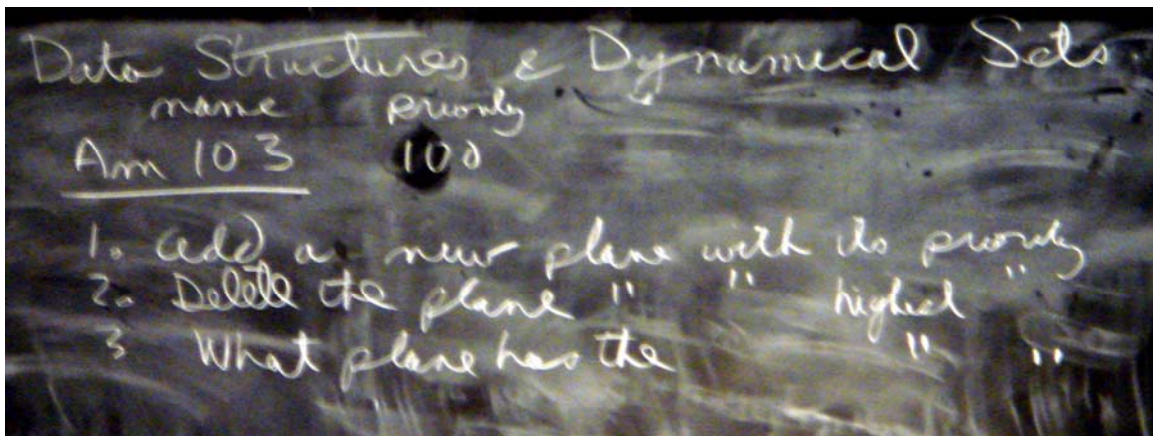 Data Structures & Dynamical Sets
name priority
Am 103 100
1. add a new plane with its priority
2. Delete the plane " " highest "
3 What plane has the " "